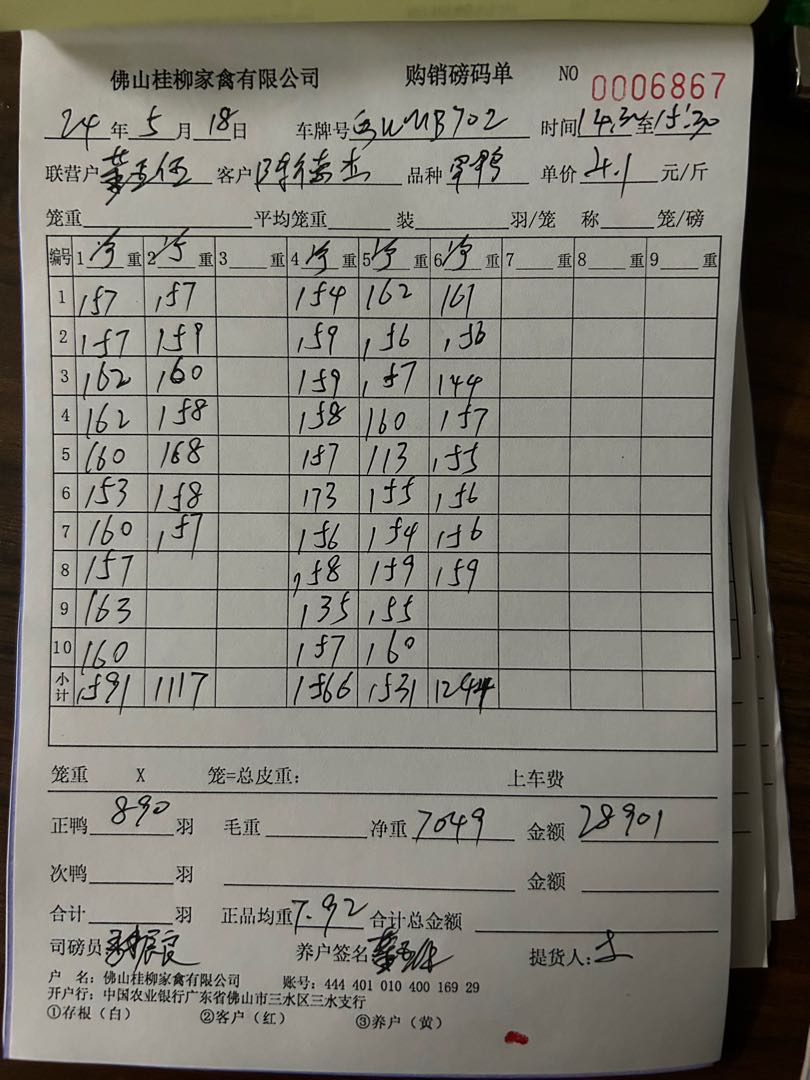 佛山桂柳家禽有限公司 购销磅码单 NO 0006867
24年5月18日 车牌号 时间14:30至15:30
联营户 客户陈德杰 品种 单价4.1元/斤
笼重 平均笼重 装 羽/笼 称 笼/磅
编号 1净重 2净重 3重 4净重 5净重 6净重 7重 8重 9重
1 157 157 154 162 161
2 157 159 159 156 156
3 162 160 159 157 144
4 162 158 158 160 157
5 160 168 157 113 155
6 153 158 173 155 156
7 160 157 156 154 156
8 157 158 159 159
9 163 135 155
10 160 157 160
小计 1591 1117 1566 1531 1244
笼重 X 笼=总皮重: 上车费
正鸭890羽 毛重 净重7049 金额28901
次鸭 羽 金额
合计 羽 正品均重7.92 合计总金额
司磅员 养户签名 提货人:
户 名: 佛山桂柳家禽有限公司 账号: 444 401 010 400 169 29
开户行: 中国农业银行广东省佛山市三水区三水支行
①存根(白) ②客户(红) ③养户(黄)